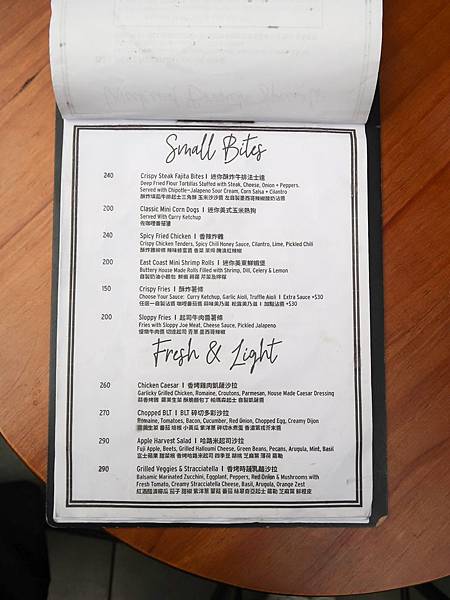 Small Bites
240 Crispy Steak Fajita Bites | 迷你酥炸牛排法士達
Deep Fried Flour Tortillas Stuffed with Steak, Cheese, Onion + Peppers.
Served with Chipotle-Jalapeno Sour Cream, Corn Salsa + Cilantro
200 Classic Mini Corn Dogs | 迷你美式玉米熱狗
Served With Curry Ketchup
佐咖哩番茄醬
240 Spicy Fried Chicken | 香辣炸雞
Crispy Chicken Tenders, Spicy Chili Honey Sauce, Cilantro, Lime, Pickled Chili
酥炸雞柳條 辣味蜂蜜醬 香菜 萊姆 醃漬紅辣椒
200 East Coast Mini Shrimp Rolls | 迷你美東鮮蝦堡
Buttery House Made Rolls Filled with Shrimp, Dill, Celery & Lemon
自製奶油小餐包 鮮蝦 蒔蘿 芹菜及檸檬
150 Crispy Fries | 酥炸薯條
Choose Your Sauce: Curry Ketchup, Garlic Aioli, Truffle Aioli | Extra Sauce +$30
任選一自製沾醬 咖哩番茄醬 蒜味美乃滋 松露美乃滋 | 加點沾醬 +$30
200 Sloppy Fries | 起司牛肉醬薯條
Fries with Sloppy Joe Meat, Cheese Sauce, Pickled Jalapeno
Fresh & Light
260 Chicken Caesar | 香烤雞肉凱薩沙拉
Garlicky Grilled Chicken, Romaine, Croutons, Parmesan, House Made Caesar Dressing
蒜香烤雞 蘿美生菜 酥脆麵包丁 帕瑪森起士 自製凱薩醬
270 Chopped BLT | BLT 碎切多彩沙拉
Romaine, Tomatoes, Bacon, Cucumber, Red Onion, Chopped Egg, Creamy Dijon
蘿美生菜 番茄 培根 小黃瓜 紫洋蔥 碎切水煮蛋 香濃第戎芥末醬
290 Apple Harvest Salad | 哈路米起司沙拉
Fuji Apple, Beets, Grilled Halloumi Cheese, Green Beans, Pecans, Arugula, Mint, Basil
富士蘋果 甜菜根 香烤哈路米起司 四季豆 胡桃 芝麻葉 薄荷 羅勒
290 Grilled Veggies & Stracciatella | 香烤時蔬乳酪沙拉
Balsamic Marinated Zucchini, Eggplant, Peppers, Red Onion & Mushrooms with
Fresh Tomato, Creamy Stracciatella Cheese, Basil, Arugula, Orange Zest